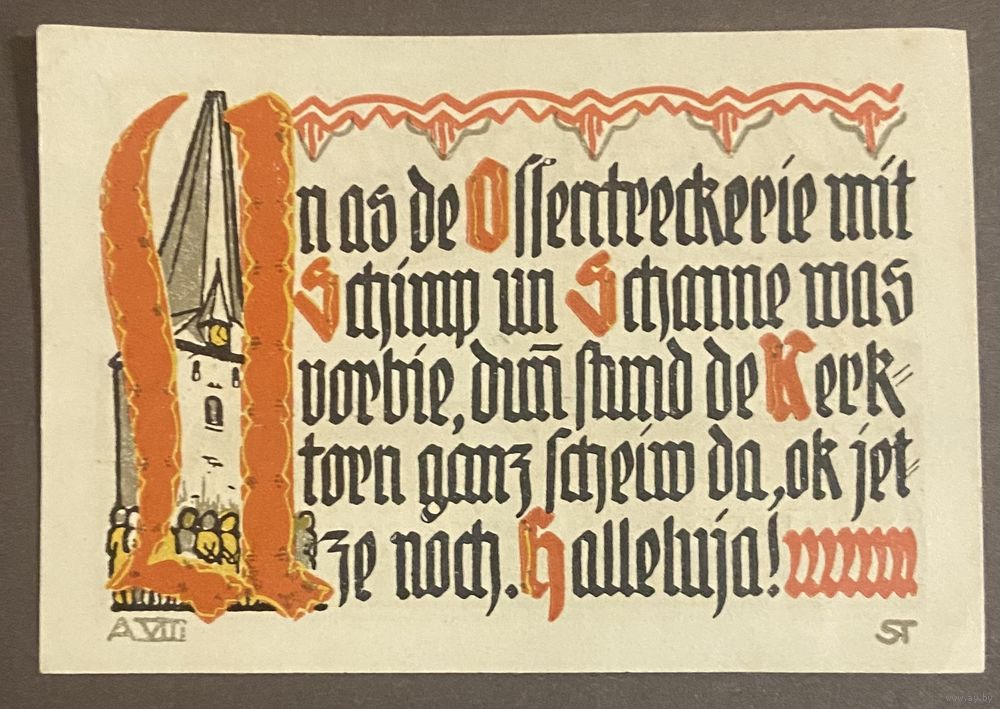 Un as de Ossentreckerie mit
Schimp un Schanne was
vorbie, dum̄ stund de Kerk⸗
torn ganz scheiw da, ok jet⸗
ze noch. Halleluja!
A VIII
ST
www.ay.by